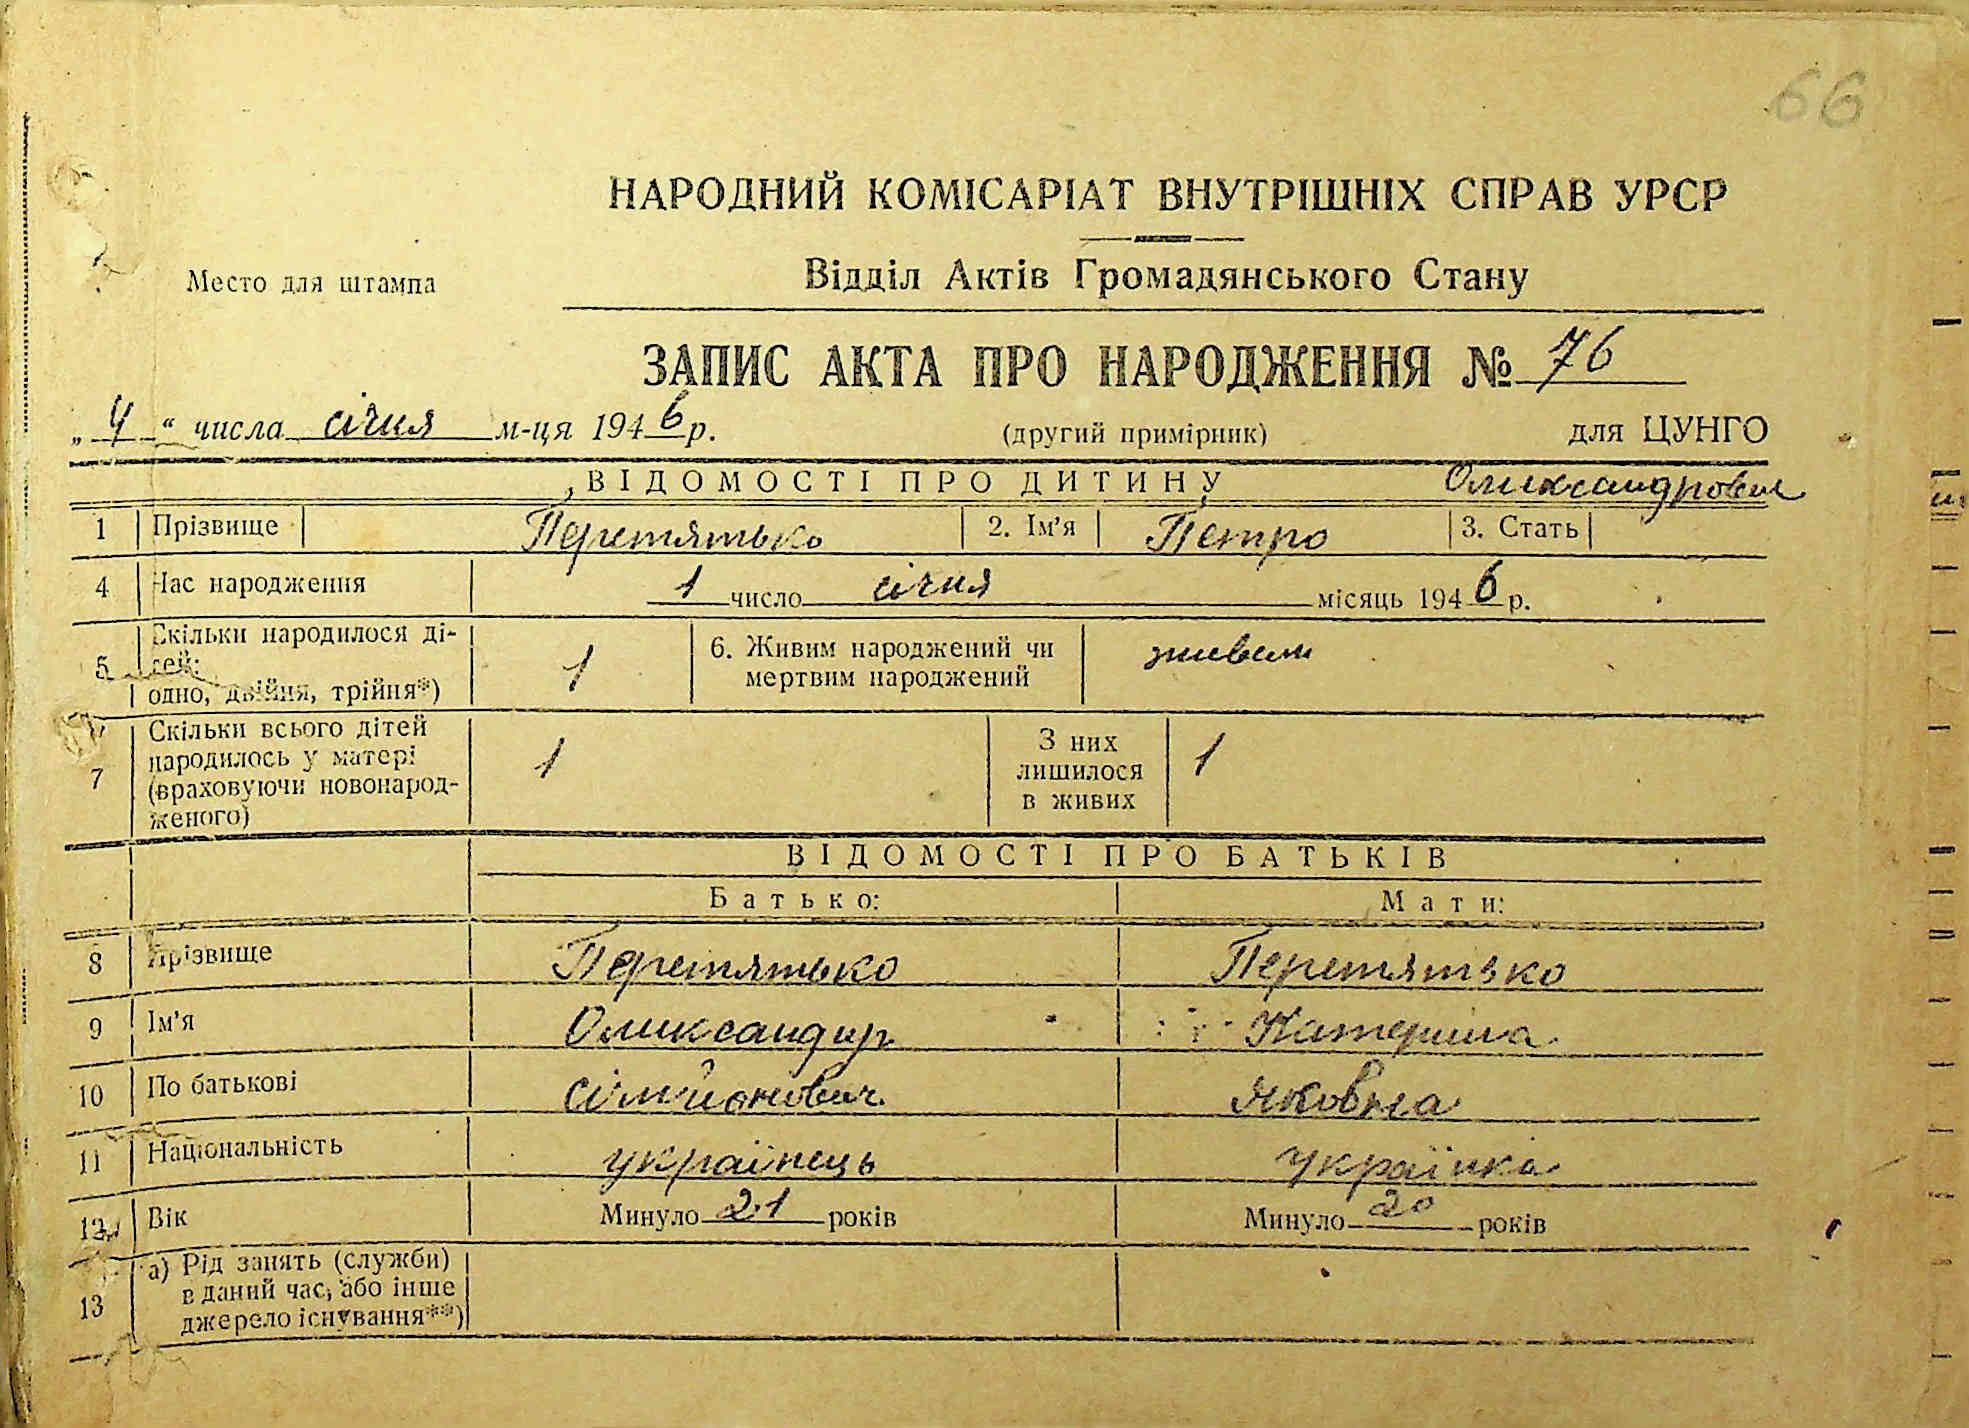 66
НАРОДНИЙ КОМІСАРІАТ ВНУТРІШНІХ СПРАВ УРСР
Место для штампа
Відділ Актів Громадянського Стану
ЗАПИС АКТА ПРО НАРОДЖЕННЯ № 76
„ 4 “ числа січня м-ця 1946 р.
(другий примірник)
для ЦУНГО
ВІДОМОСТІ ПРО ДИТИНУ
Олександрович
1 Прізвище Перетятько 2. Ім'я Петро 3. Стать
4 Час народження 1 число січня місяць 1946 р.
5 Скільки народилося дітей: одно, двійня, трійня*) 1
6. Живим народжений чи мертвим народжений живим
7 Скільки всього дітей народилось у матері (враховуючи новонародженого) 1
З них лишилося в живих 1
ВІДОМОСТІ ПРО БАТЬКІВ
Батько: Мати:
8 Прізвище Перетятько Перетятько
9 Ім'я Олександр Катерина
10 По батькові Сімйонович Яковна
11 Національність українець українка
12 Вік Минуло 21 років Минуло 20 років
13 а) Рід занять (служби) в даний час, або інше джерело існування**)